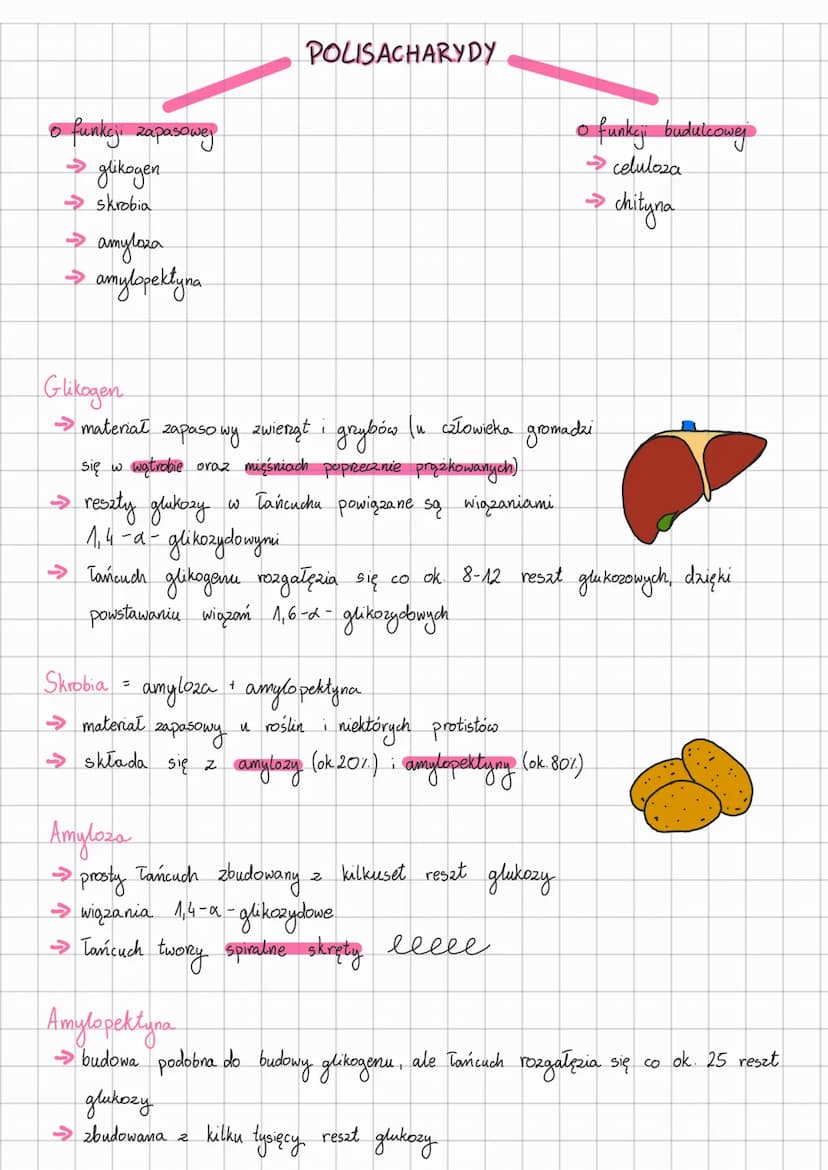 POLISACHARYDY
o funkcji zapasowej
→ glikogen
→ skrobia
→ amyloza
→ amylopektyna
o funkcji budulcowej
→ celuloza
→ chityna
Glikogen
→ materiał zapasowy zwierząt i grzybów (u człowieka gromadzi
się w wątrobie oraz mięśniach poprzecznie prążkowanych)
→ reszty glukozy w łańcuchu powiązane są wiązaniami
1,4-α-glikozydowymi
→ łańcuch glikogenu rozgałęzia się co ok. 8-12 reszt glukozowych, dzięki
powstawaniu wiązań 1,6-α-glikozydowych
Skrobia = amyloza + amylopektyna
→ materiał zapasowy u roślin i niektórych protistów
→ składa się z amylozy (ok 20%) i amylopektyny (ok. 80%)
Amyloza
→ prosty łańcuch zbudowany z kilkuset reszt glukozy
→ wiązania 1,4-α-glikozydowe
→ łańcuch tworzy spiralne skręty
Amylopektyna
→ budowa podobna do budowy glikogenu, ale łańcuch rozgałęzia się co ok. 25 reszt
glukozy
→ zbudowana z kilku tysięcy reszt glukozy